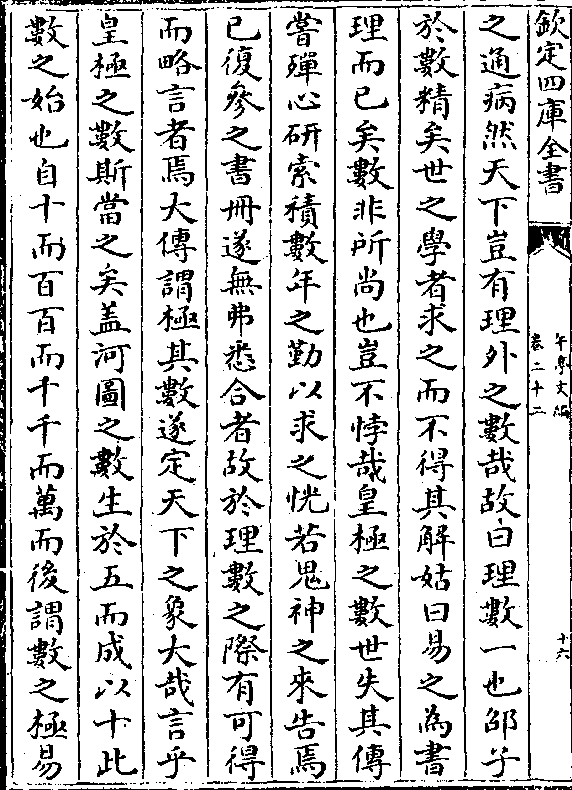 欽定四庫全書
卷二十二
十六
之通病然天下豈有理外之數哉故曰理數一也邵子
於數精矣世之學者求之而不得其解姑曰易之為書
理而已矣數非所尚也豈不悖哉皇極之數世失其傳
嘗殫心研索積數年之勤以求之恍若鬼神之來告焉
已復參之書冊遂無弗悉合者故於理數之際有可得
而略言者焉大傳謂極其數遂定天下之象大哉言乎
皇極之數斯當之矣盖河圖之數生於五而成以十此
數之始也自十而百百而千千而萬而後謂數之極易